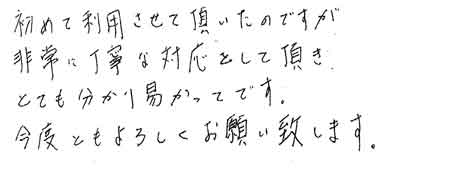 初めて利用させて頂いたのですが
非常に丁寧な対応をして頂き
とても分かり易かってです。
今度ともよろしくお願い致します。